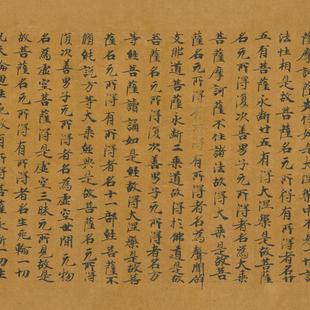 薩摩訶薩安住如是大涅槃中不見一切諸
法性相是故菩薩名无所得有所得者名廿
五有菩薩永斷廿五有得大涅槃是故菩薩
名无所得復次善男子无所得者名為大乘
菩薩摩訶薩不住諸法故得大乘是故菩
薩名无所得有所得者名為聲聞辟
支佛道菩薩永斷二乘道故得於佛道是故
菩薩名无所得復次善男子无所得者名方
等經菩薩讀誦如是經故得大涅槃是故菩
薩名无所得有所得者名十一部經菩薩不
脩純説方等大乘經典是故菩薩名无所得
復次善男子无所得者名為虛空世間无物
名為虛空菩薩得是虛空三昧无所見故是
故菩薩名无所得有所得者名生死輪一切
凡夫輪迴生死故有所得菩薩永斷一切生